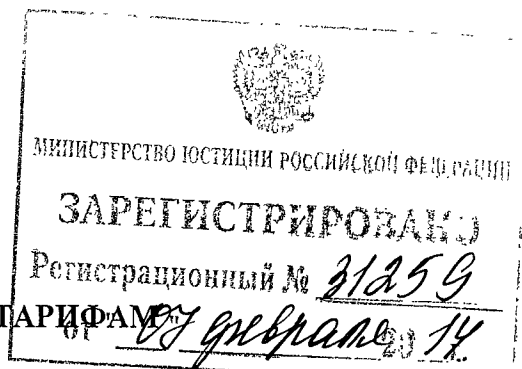 МИНИСТЕРСТВО ЮСТИЦИИ РОССИЙСКОЙ ФЕДЕРАЦИИ
ЗАРЕГИСТРИРОВАНО
Регистрационный № 31259
ТАРИФАМ
от "07" февраля 2014.